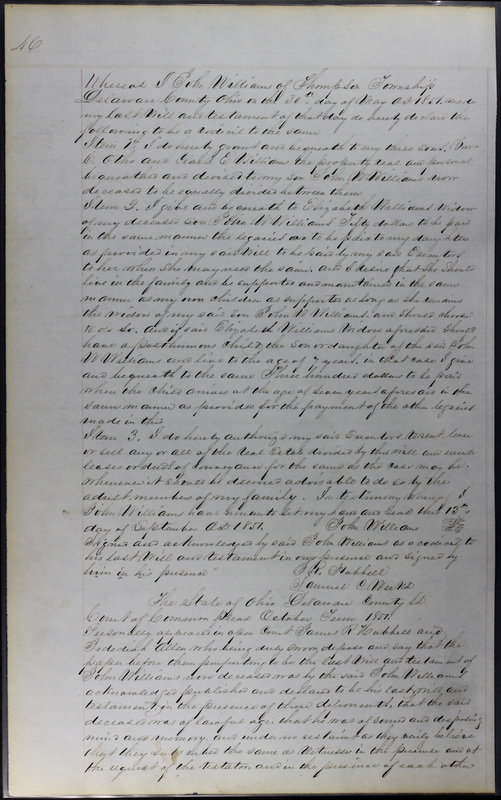 46
Whereas I John Williams of Thompson Township
Delaware County Ohio on the 30th day of May AD 1851. made
my last Will and testament of that day do hereby declare the
following to be a codicil to the same
Item 1st I do hereby grant and bequeath to my three Sons,
C. Otho and E Williams the property real and personal
bequeathed and devised to my Son John W Williams now
deceased to be equally divided between them
Item 2. I give and bequeath to Elizabeth Williams Widow
of my deceased Son John W Williams Fifty dollars to be paid
in the same manner the legacies are to be paid to my daughters
as provided in my said Will to be paid by my said Executors
to her when she may need the same, and I desire that she should
live in the family and be supported and maintained in the same
manner as my own children as supported as long as she remains
the widow of my said Son John W Williams, and should choose
to do so. And if said Elizabeth Williams Widow aforesaid should
have a posthumous child, the Son or daughter of the said John
W Williams and live to the age of 7 years, in that case I give
and bequeath to the same Three hundred dollars to be paid
when the child arrives at the age of seven years aforesaid in the
same manner as provided for the payment of the other legacies
made in this
Item 3. I do hereby authorize my said Executors to rent, lease
or sell any or all of the Real Estate devised by this will and execute
leases or deeds of conveyance for the same as the case may be.
Whenever it should be deemed advisable to do so by the
adult members of my family. In testimony whereof I
John Williams have hereunto set my hand and seal this 13th
day of September AD 1851. John Williams
Signed and acknowledged by said John Williams as a codicil to
his last Will and testament in our presence and signed by
him in his presence
J. R. Hubbell
Samuel C.
The State of Ohio Delaware County SS
Court of Common Pleas October Term 1851.
Personally appeared in open Court James R Hubbell and
Jedediah Allen who being duly sworn depose and say that the
paper before them purporting to be the last Will and testament of
John Williams now deceased was by the said John Williams
acknowledged published and declared to be his last will and
testament, in the presence of these deponents, that the said
deceased was of lawful age, that he was of sound and disposing
mind and memory, and under no restraint as they verily believe
that they subscribed the same as Witnesses in the presence and at
the request of the testator and in the presence of each other